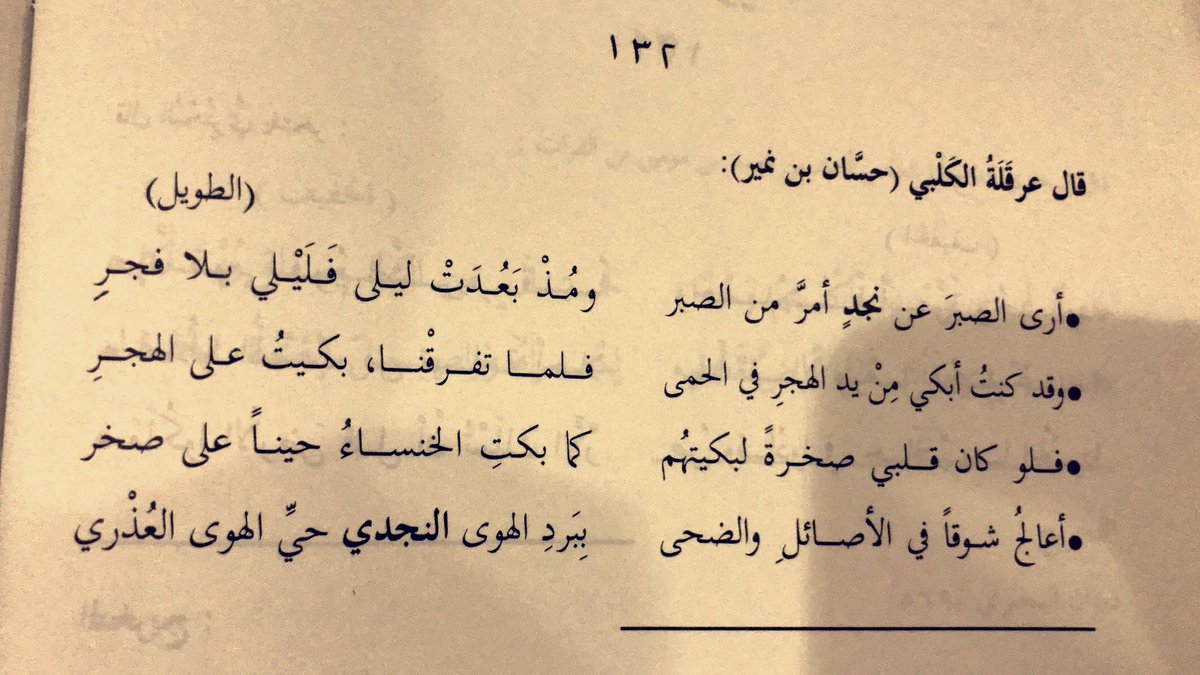 ١٣٢
قال عرقَلَةُ الكَلْبي (حسَّان بن نمير):
(الطويل)
•أرى الصبرَ عن نجدٍ أمرَّ من الصبر ومُذْ بَعُدَتْ ليلى فَلَيْلي بلا فجرِ
•وقد كنتُ أبكي مِنْ يد الهجرِ في الحمى فلما تفرقْنا، بكيتُ على الهجرِ
•فلو كان قلبي صخرةً لبكيتهُم كما بكتِ الخنساءُ حيناً على صخر
•أعالجُ شوقاً في الأصائلِ والضحى بِبَردِ الهوى النجدي حيِّ الهوى العُذْري